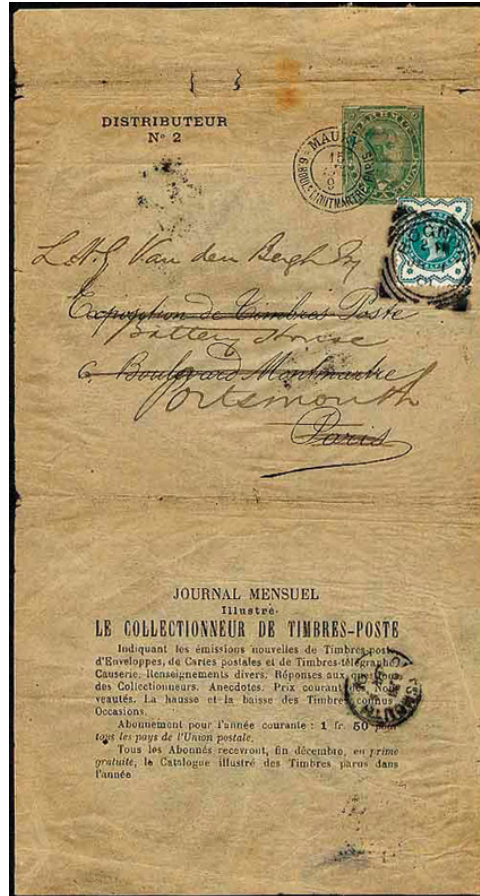 DISTRIBUTEUR
N° 2
MAURY
6. BOUL. MONTMARTRE. PARIS
15
9
BOGNOR
2 PM
Van den Bergh Esq
Exposition de Timbres Poste
Battery House
6. Boulevard Montmartre
Portsmouth
Paris
JOURNAL MENSUEL
Illustré
LE COLLECTIONNEUR DE TIMBRES-POSTE
Indiquant les émissions nouvelles de Timbres-poste
d'Enveloppes, de Cartes postales et de Timbres-télégraphe
Causerie, Renseignements divers, Réponses aux questions
des Collectionneurs. Anecdotes. Prix courant des Nou-
veautés. La hausse et la baisse des Timbres connus
Occasions.
Abonnement pour l'année courante : 1 fr. 50 pour
tous les pays de l'Union postale.
Tous les Abonnés recevront, fin décembre, en prime
gratuite, le Catalogue illustré des Timbres parus dans
l'année